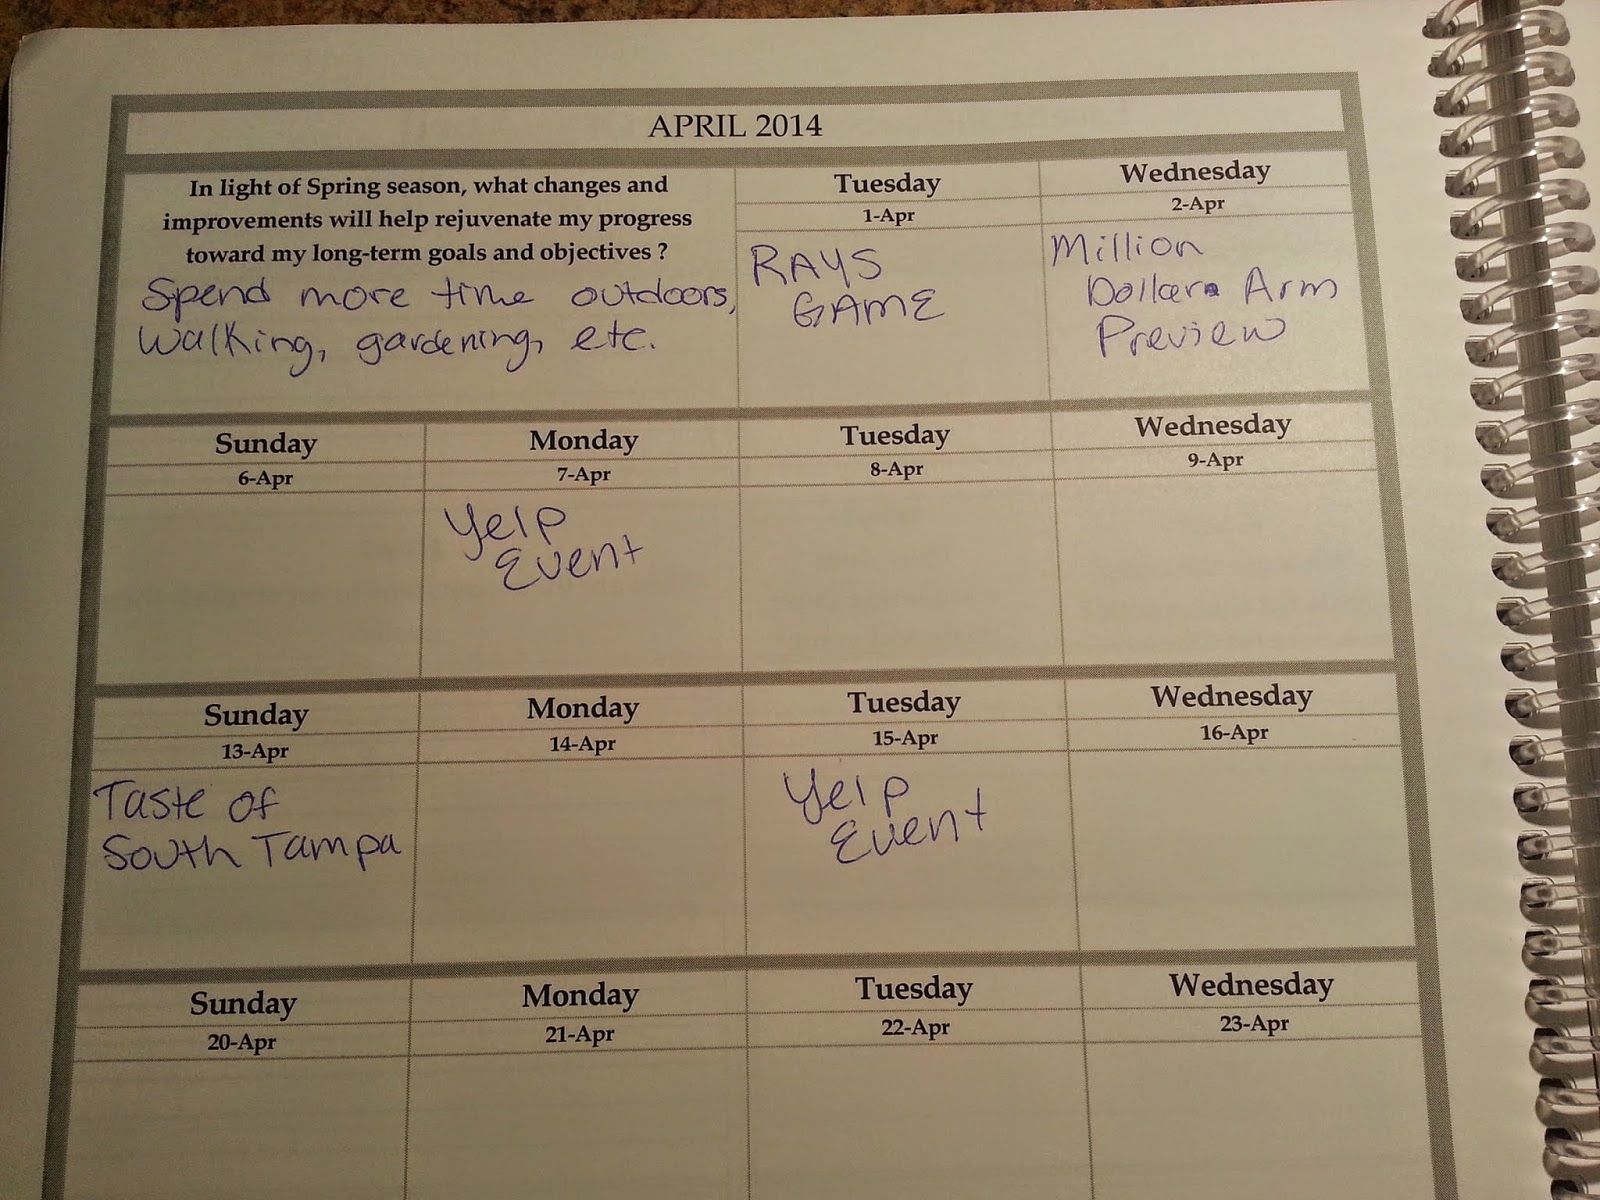 APRIL 2014
In light of Spring season, what changes and
improvements will help rejuvenate my progress
toward my long-term goals and objectives ?
Spend more time outdoors,
walking, gardening, etc.
Tuesday
1-Apr
RAYS
GAME
Wednesday
2-Apr
Million
Dollar Arm
Preview
Sunday
6-Apr
Monday
7-Apr
Yelp
Event
Tuesday
8-Apr
Wednesday
9-Apr
Sunday
13-Apr
Taste of
South Tampa
Monday
14-Apr
Tuesday
15-Apr
Yelp
Event
Wednesday
16-Apr
Sunday
20-Apr
Monday
21-Apr
Tuesday
22-Apr
Wednesday
23-Apr